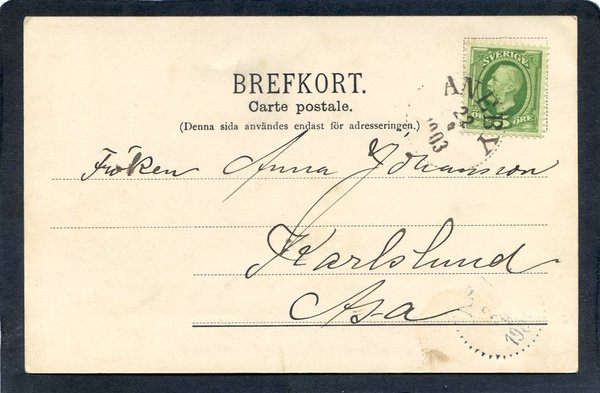 SVERIGE
BREFKORT.
Carte postale.
(Denna sida användes endast för adresseringen.)
5 ÖRE
ANEBY
1903
Fröken Anna Johansson
Karlslund
Asa